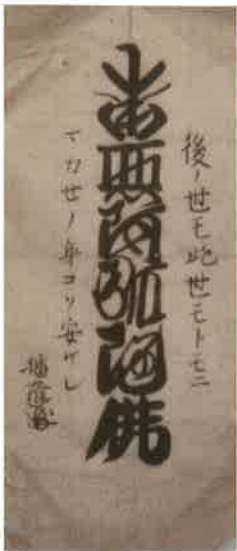 後ノ世モ此世モトモニ
南無阿弥陀佛
マカセノ身コソ安ケレ